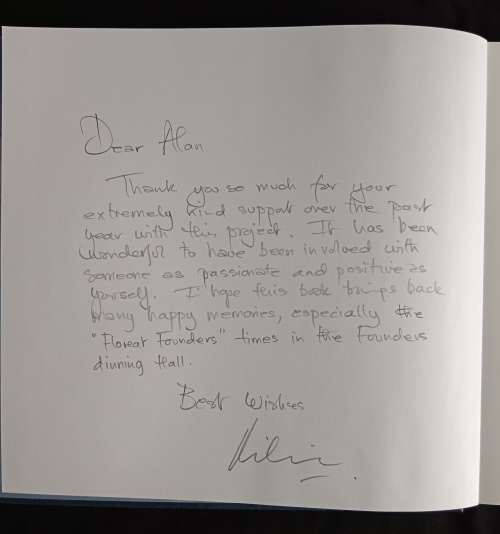 Dear Alan
Thank you so much for your
extremely kind support over the past
year with this project. It has been
wonderful to have been involved with
someone as passionate and positive as
yourself. I hope this book brings back
many happy memories, especially the
"Floreat Founders" times in the Founders
dinning Hall.
Best Wishes